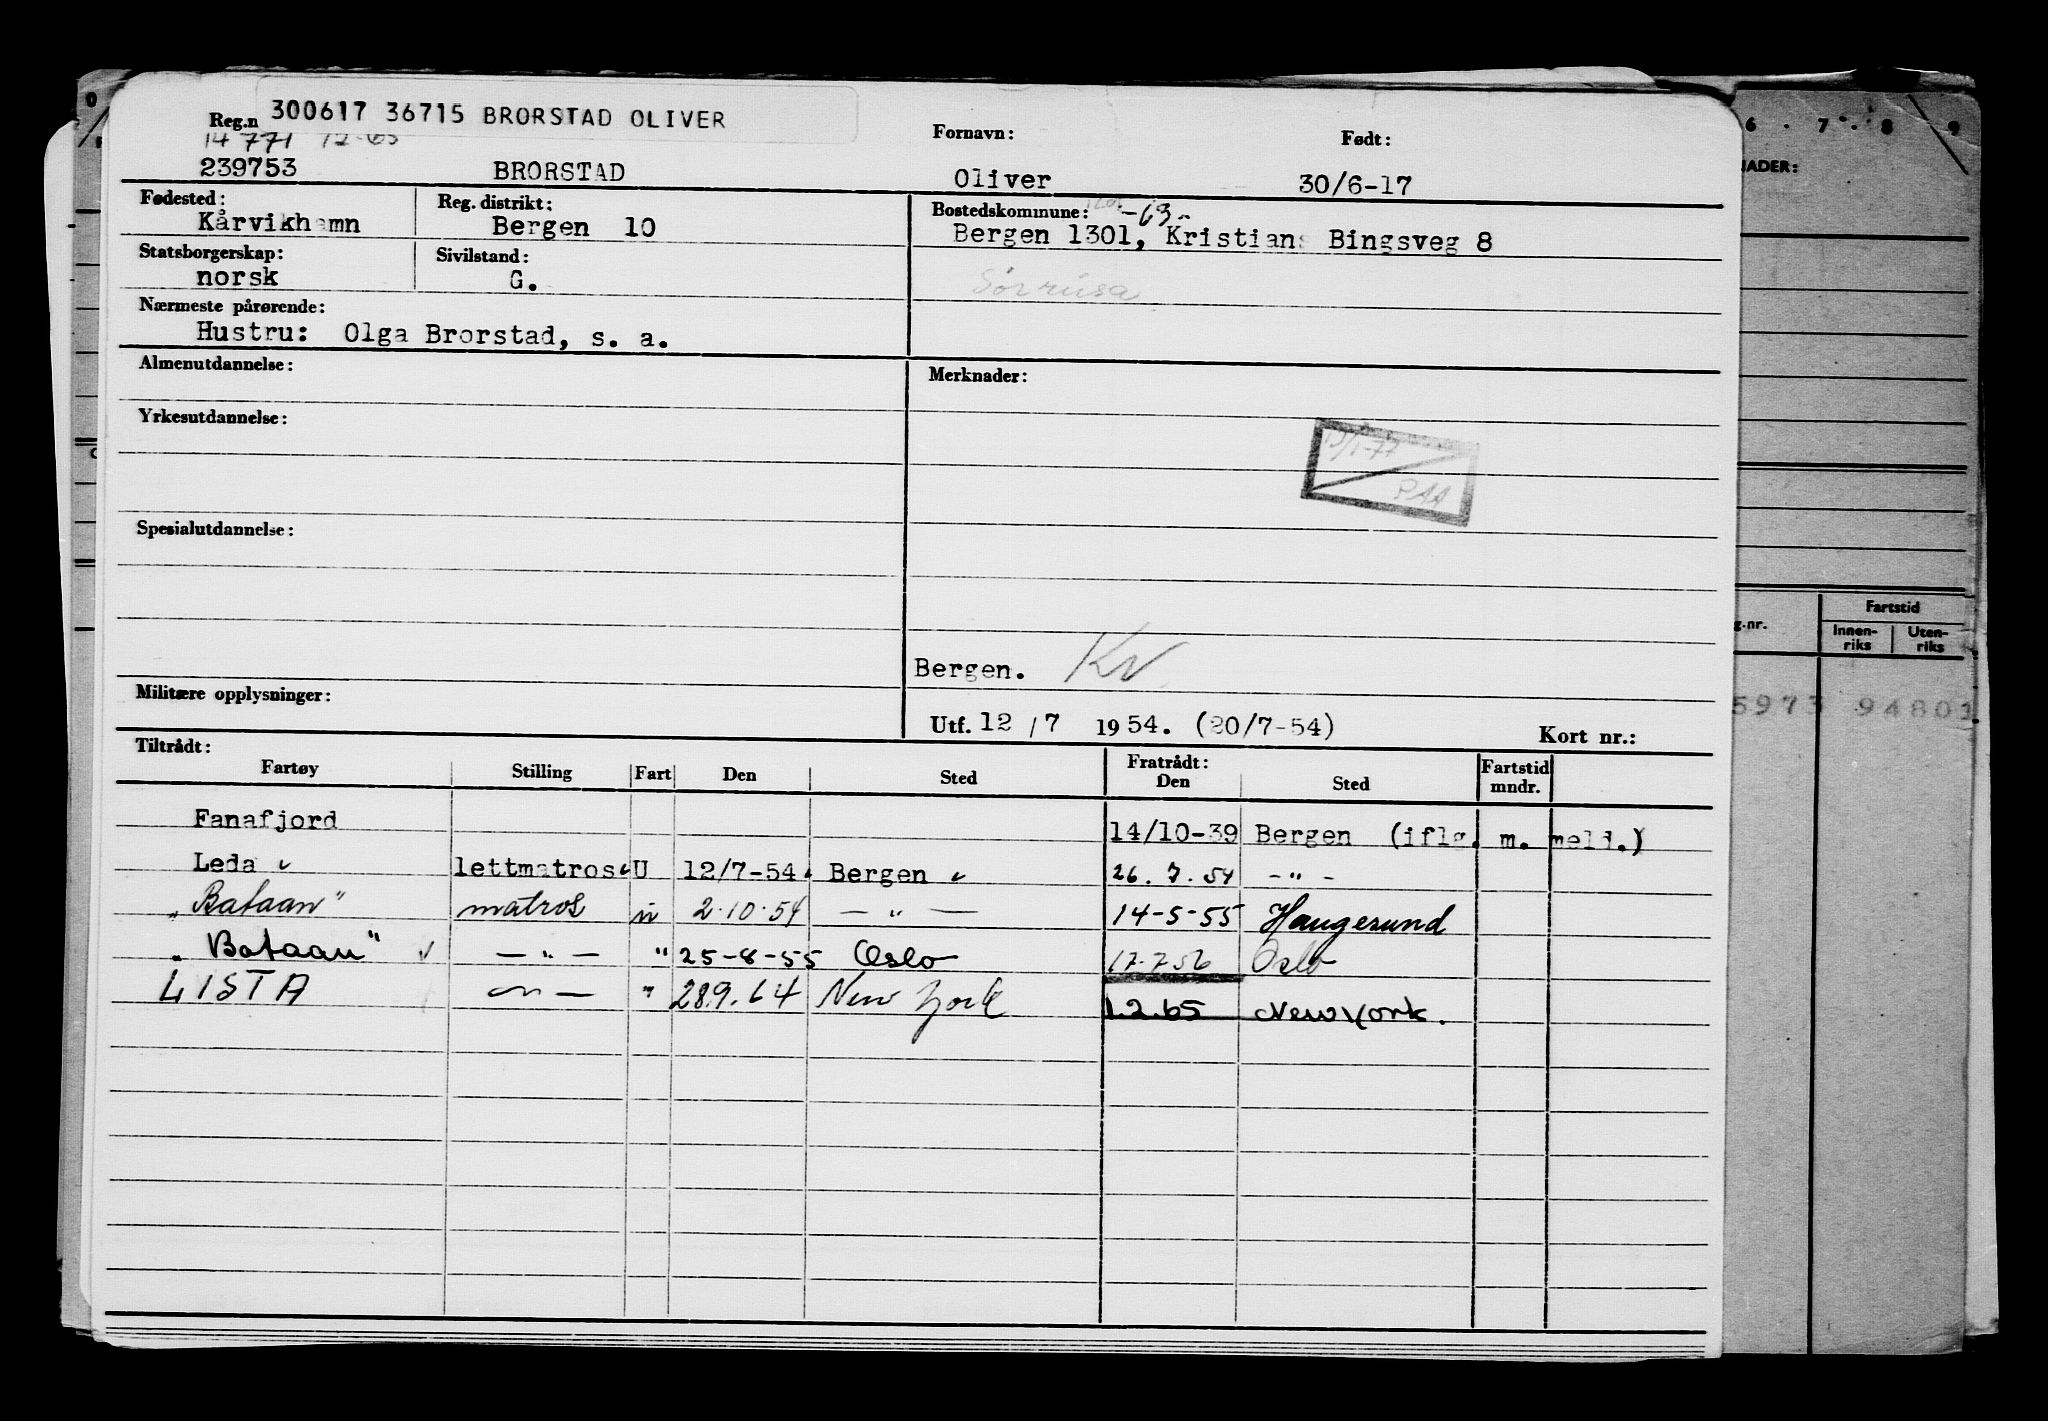 300617 36715 BRORSTAD OLIVER
Reg.n
14 771 12-65
Fornavn:
Født:
239753 BRORSTAD Oliver 30/6-17
Fødested: Reg. distrikt: Bostedskommune: -63-
Kårvikhamn Bergen 10 Bergen 1301, Kristians Bingsveg 8
Statsborgerskap: Sivilstand:
norsk G.
Nærmeste pårørende:
Hustru: Olga Brorstad, s. a.
Almenutdannelse: Merknader:
Yrkesutdannelse:
PAA
Spesialutdannelse:
Bergen. KV
Militære opplysninger:
Utf. 12 / 7 1954. (20/7-54) Kort nr.:
Tiltrådt: Fratrådt:
Fartøy Stilling Fart Den Sted Den Sted Fartstid mndr.
Fanafjord 14/10-39 Bergen (iflg. m. meld.)
Leda lettmatros U 12/7-54 Bergen 26.7.54 - " -
"Bataan" matros u 2.10.54 - " - 14-5-55 Haugesund
"Bataan" - " - " 25-8-55 Oslo 17.7.56 Oslo
LISTA - " - " 28.9.64 New York 1.2.65 New York.
0
6 . 7 . 8 9
NADER:
g.nr. Fartstid
Innen-riks Uten-riks
5973 94801